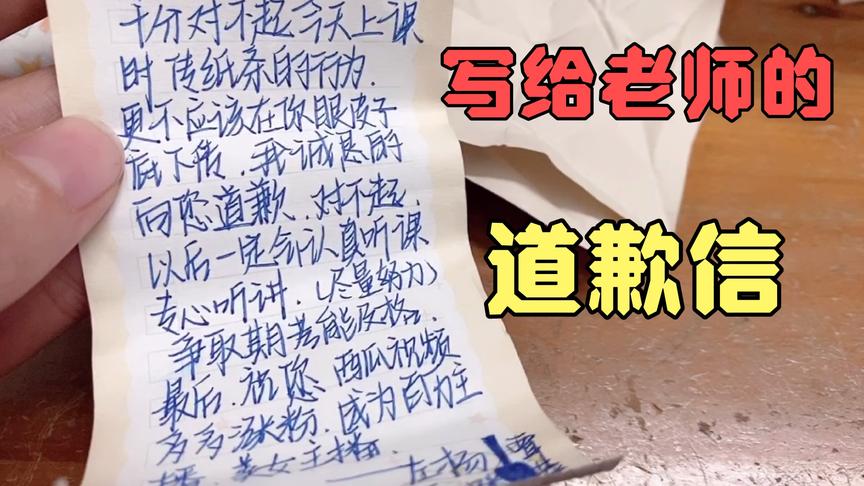 十分对不起今天上课
时传纸条的行为.
更不应该在你眼皮子
底下传.我诚恳的
向您道歉.对不起.
以后一定会认真听课
专心听讲.(尽量努力)
争取期考能及格.
最后.祝您西瓜视频
多多涨粉.成为百万主
播.美女主播.
写给老师的
道歉信